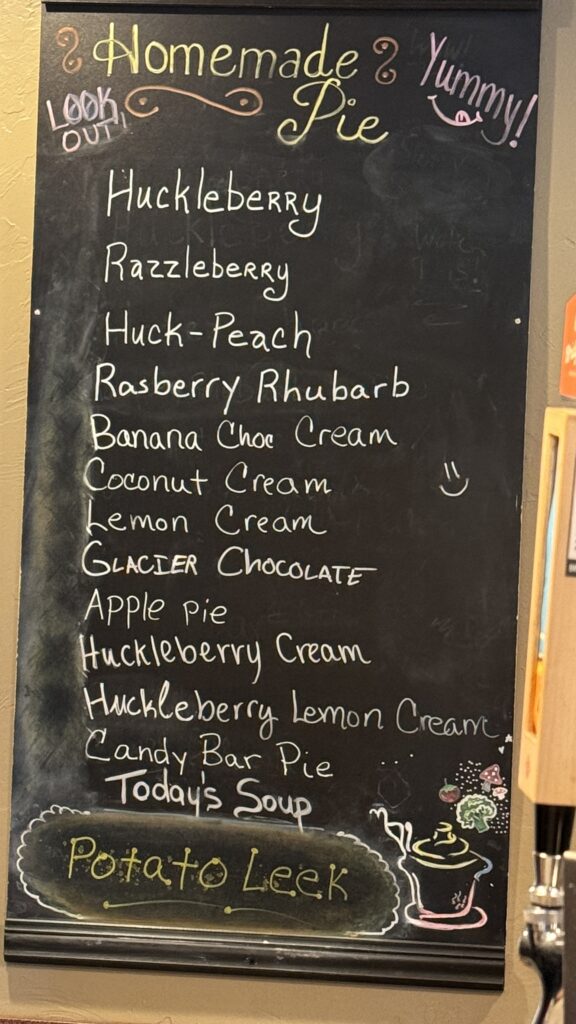 Homemade
Pie
Yummy!
LOOK
OUT!
Huckleberry
Razzleberry
Huck-Peach
Rasberry Rhubarb
Banana Choc Cream
Coconut Cream
Lemon Cream
GLACIER CHOCOLATE
Apple pie
Huckleberry Cream
Huckleberry Lemon Cream
Candy Bar Pie
Today's Soup
Potato Leek